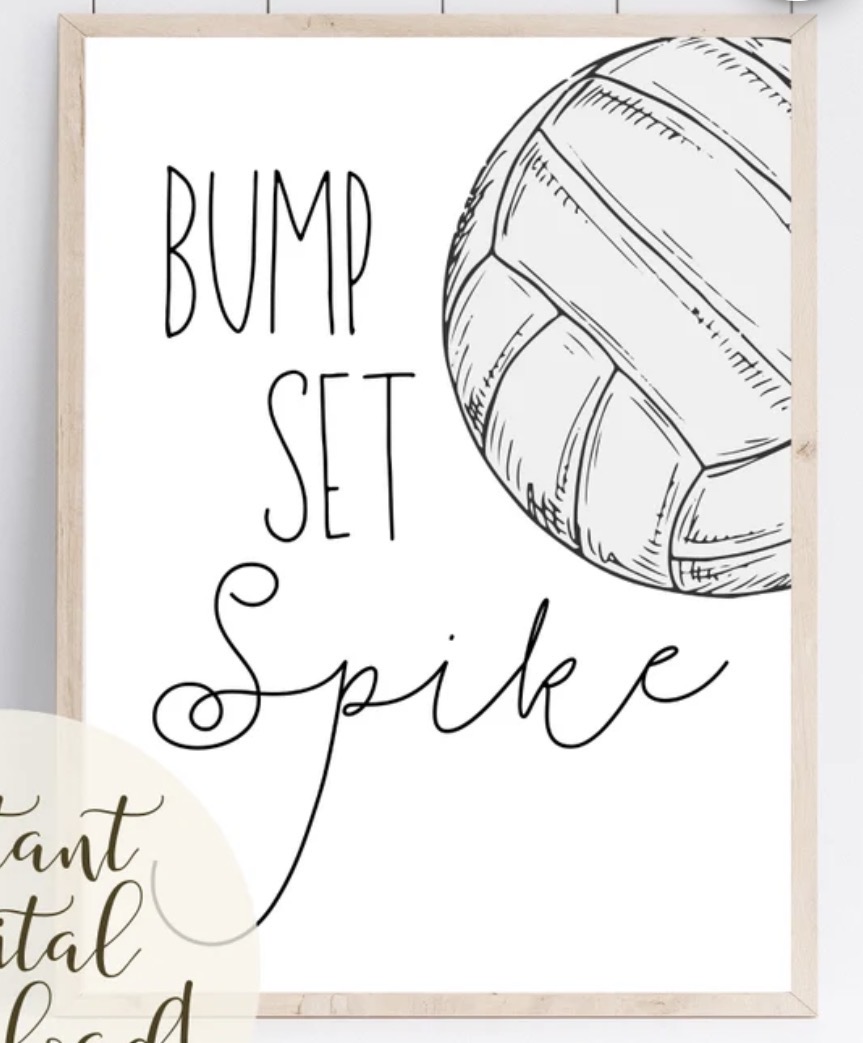 BUMP
SET
Spike
tant
ital
load